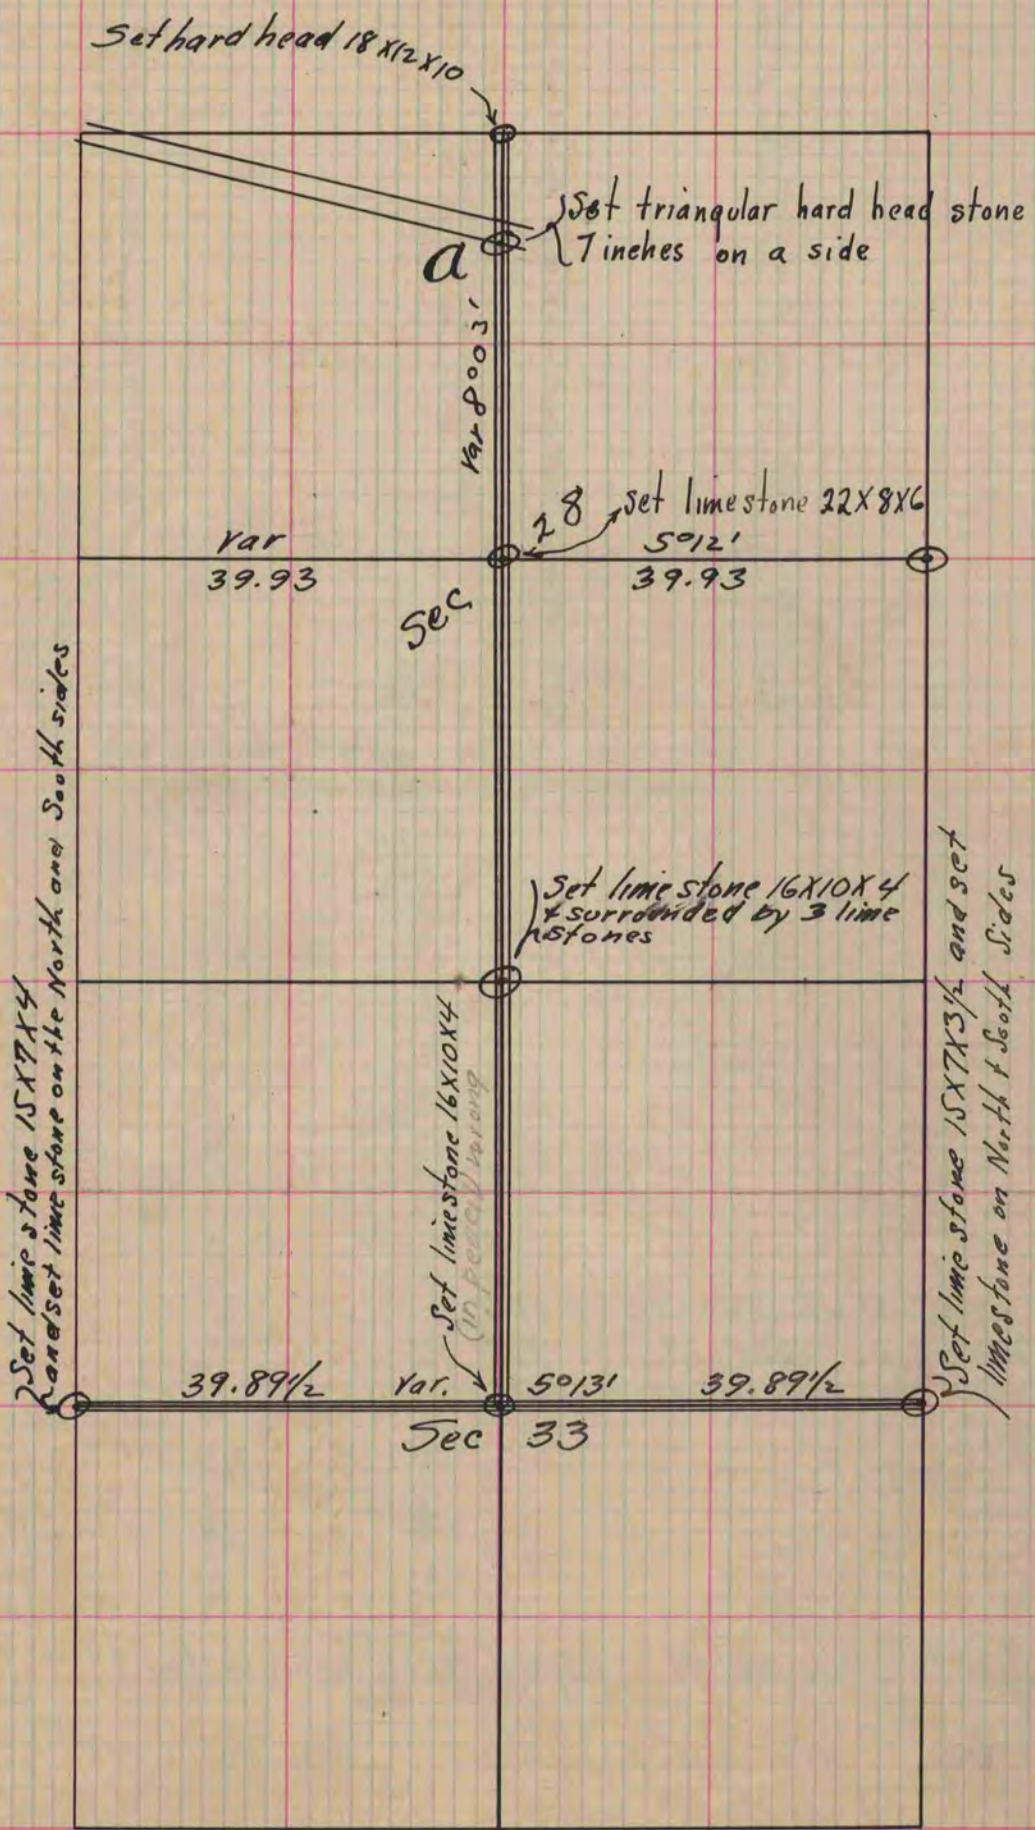 Set hard head 18X12X10
Set triangular hard head stone
7 inches on a side
a
Var 8°03'
28
set limestone 22X8X6
Var
5°12'
39.93
39.93
Sec
Set lime stone 16X10X4
& surrounded by 3 lime
stones
Set lime stone 15X7X4
and set lime stone on the North and South sides
Set limestone 16X10X4
(in pencil wrong
Set lime stone 15X7X3½ and set
limestone on North & South Sides
39.89½
Var.
5°13'
39.89½
Sec 33